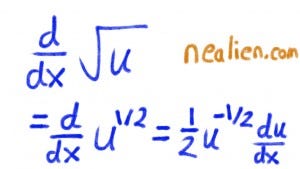 d/dx √u nealien.com
= d/dx u^1/2 = 1/2 u^-1/2 du/dx